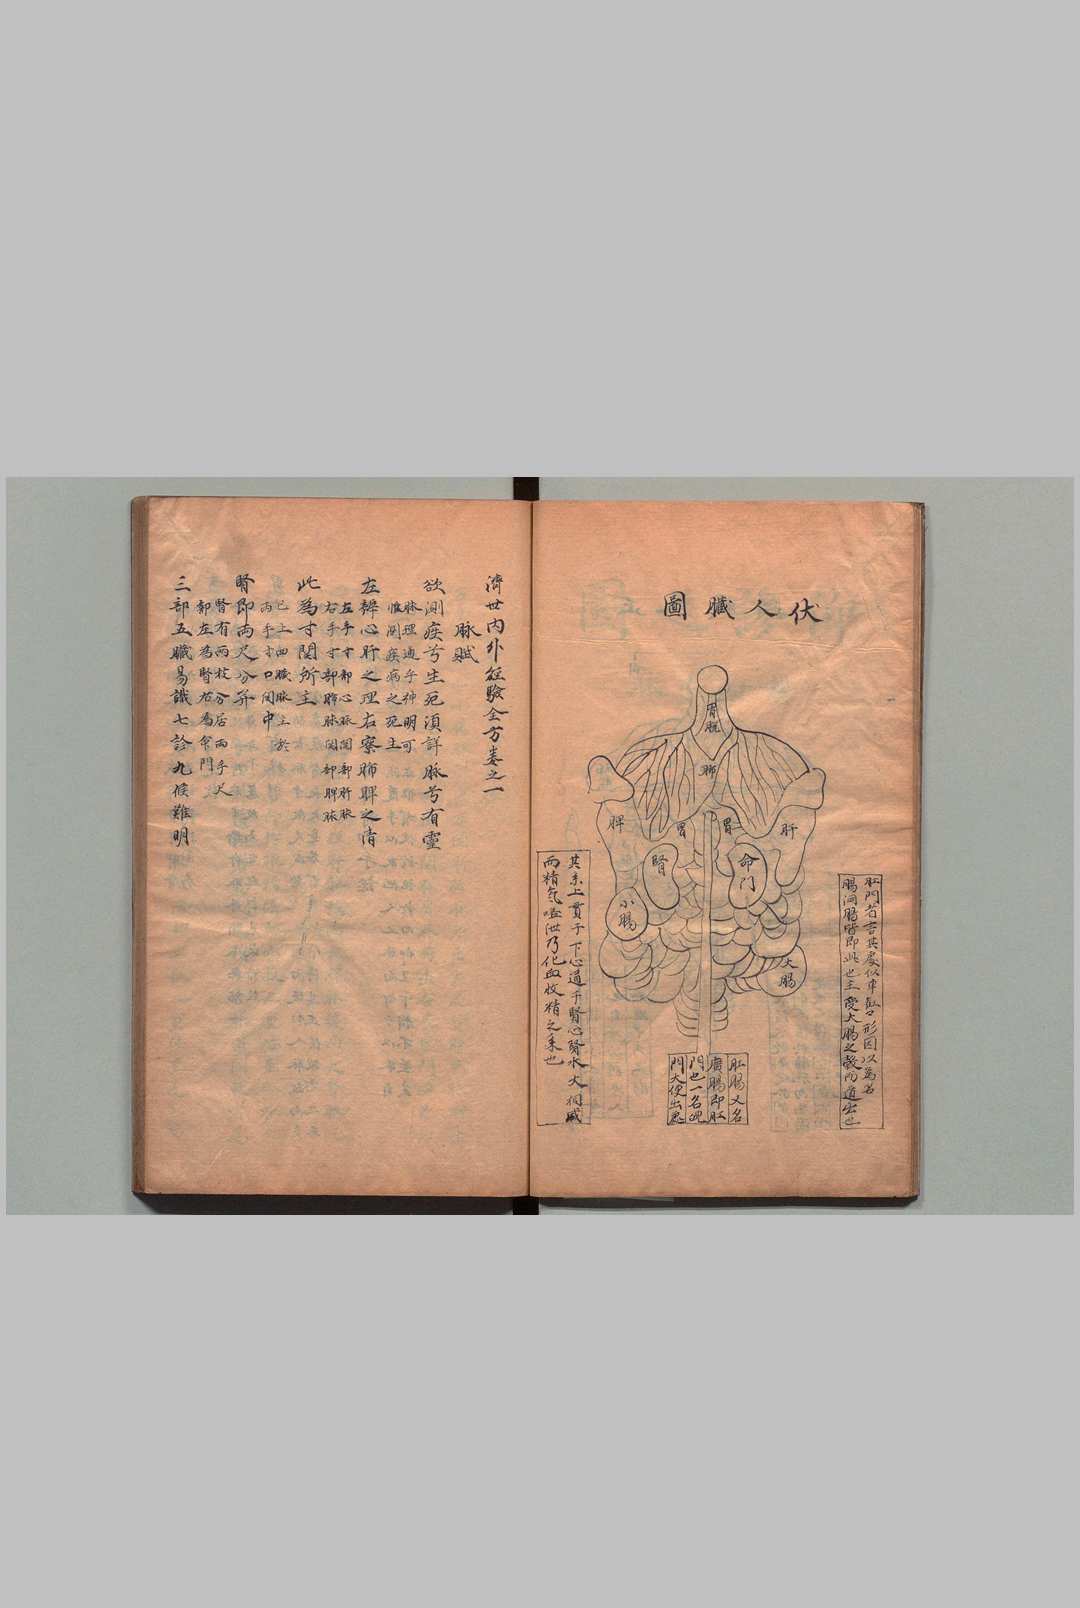 伏人臟圖
胃脘
肺
脾
胃
胃
肝
腎
命門
小腸
大腸
肛門者言其處似車缸形因以為名
腸洞腸皆即此也主受大腸之穀而道出也
肛腸又名
廣腸即肛
門也一名魄
門大便出處
其系上貫于下心通于腎心腎水火相感
而精氣溢泄乃化血收精之系也
濟世內外經驗全方卷之一
脉賦
欲測疾兮生死湏詳脉兮有靈
脉理通乎神明可
惟測疾病之死生
左辯心肝之理右察肺脾之情
左手寸部心脉関部肝脉
右手寸部肺脉関部脾脉
此為寸関所主
已上四臟脉主於
兩手寸口関中
腎即両尺分并
腎有両枝分居両手尺
部左為腎右為命門
三部五臟易識七診九候難明